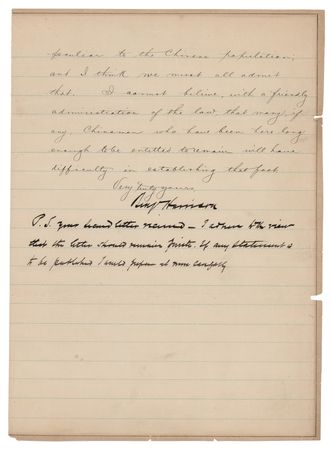 peculiar to the Chinese population;
and I think we must all admit
that. I cannot believe, with a friendly
administration of the law, that many, if
any, Chinaman who have been here long
enough to be entitled to remain will have
difficulty in establishing that fact.
Very truly yours,
Benj Harrison
P.S. your second letter received – I adhere to the view
that the letter should remain private. If any statement is
to be published I would prepare it more carefully